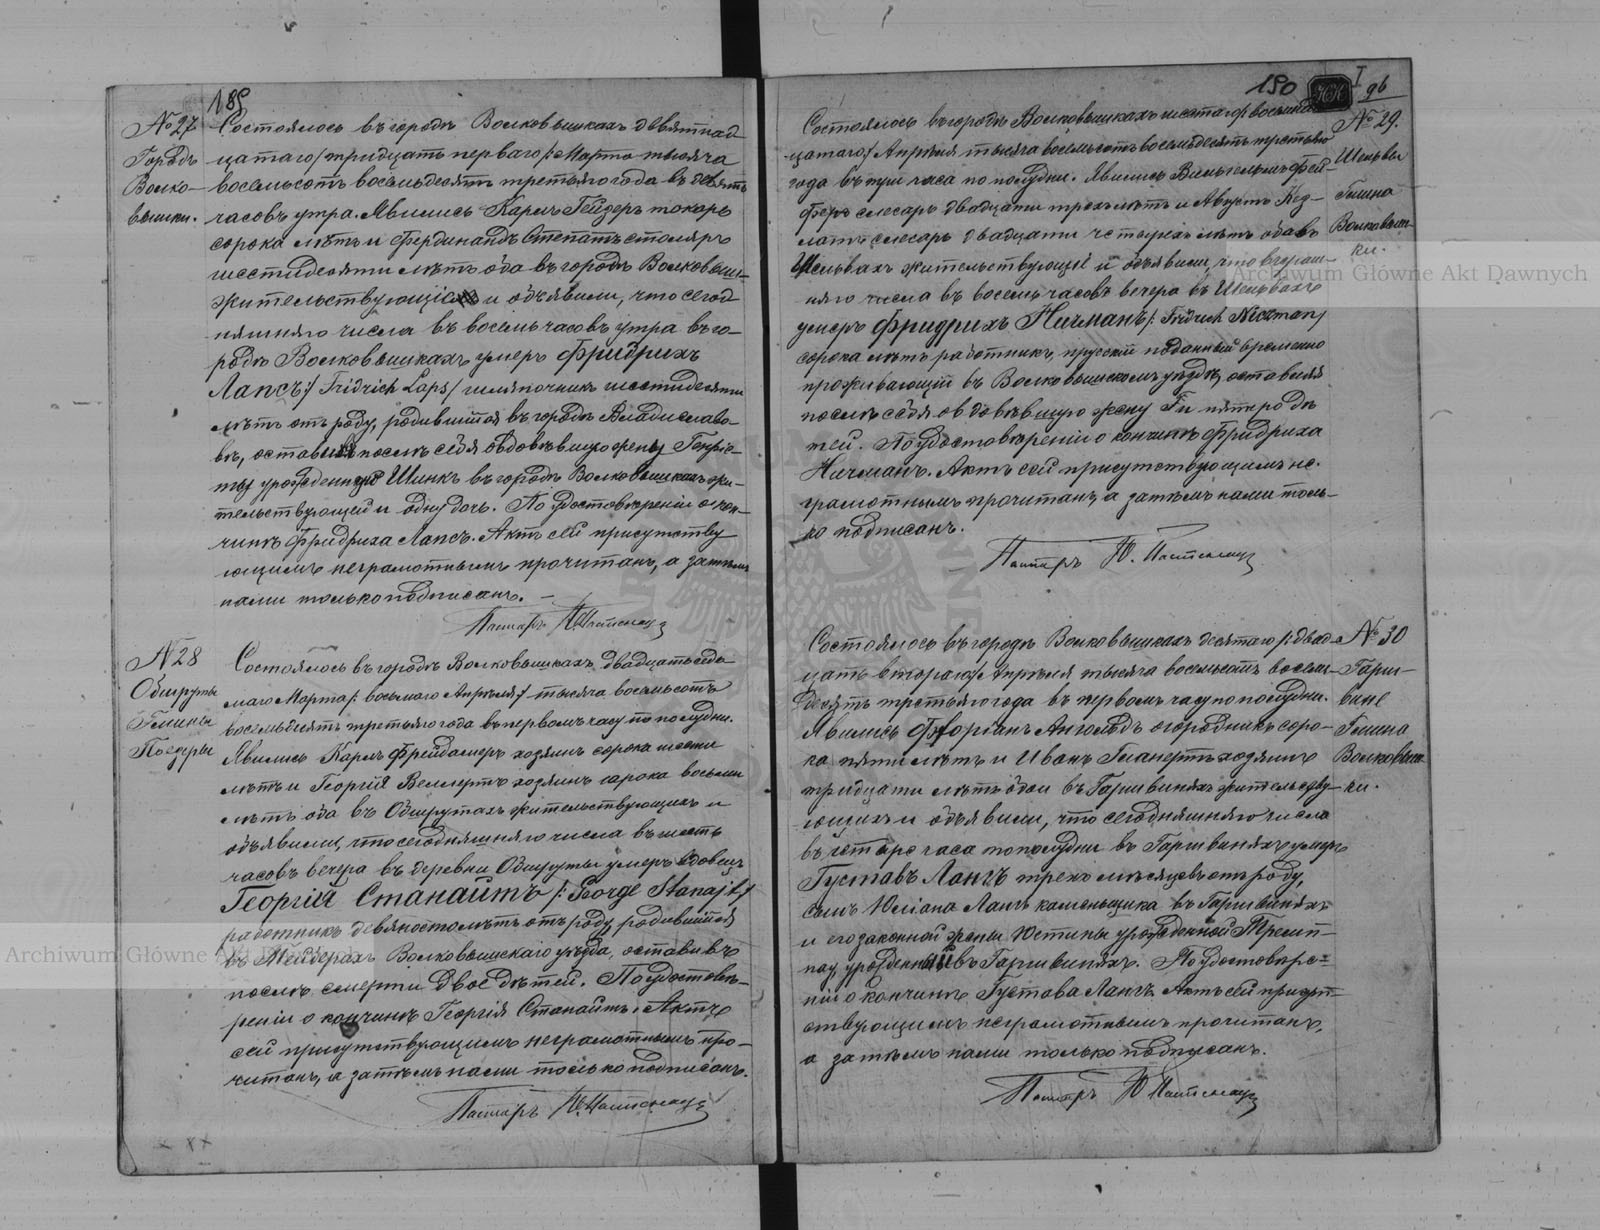 189
№ 27
Городъ
Волко-
вышки.
Состоялось въ городѣ Волковышкахъ девятнад
цатаго /тридцать перваго/ Марта тысяча
восемьсотъ восемьдесятъ третьяго года въ девять
часовъ утра. Явились Карлъ Гейдеръ токарь
сорока лѣтъ и Фердинандъ Степатъ столяръ
шестидесяти лѣтъ оба въ городѣ Волковыш-
жительствующіе и объявили, что сегод
няшняго числа въ восемь часовъ утра въ го-
родѣ Волковышкахъ умеръ Фридрихъ
Лапсъ /Fridrich Laps/ шляпочникъ шестидесяти
лѣтъ отъ роду, родившійся въ городѣ Владиславо-
вѣ, оставивъ послѣ себя овдовѣвшую жену Генріе-
ту урожденную Шинкъ въ городѣ Волковышкахъ жи-
тельствующей и одну дочь. По удостовѣреніи о кон-
чинѣ Фридриха Лапсъ. Актъ сей присутству
ющимъ неграмотнымъ прочитанъ, а затѣмъ
нами только подписанъ. –
Пасторъ
№ 28
Обшруты
Гмины
Поедеры
Состоялось въ городѣ Волковышкахъ двадцать седь
маго Марта /: восьмаго Апрѣля / тысяча восемьсотъ
восемьдесятъ третьяго года въ первомъ часу по полудни.
Явились Карлъ Фрейдамеръ хозяинъ сорока шести
лѣтъ и Георгій Веллертъ хозяинъ сорока восьми
лѣтъ оба въ Обшрутахъ жительствующихъ и
объявили, что сегодняшняго числа въ шесть
часовъ вечера въ деревни Обшруты умеръ вдовецъ
Георгій Станайтъ /: George Stanajt /
работникъ девяносто лѣтъ отъ роду, родившійся
въ Мейшерахъ Волковышскаго уѣзда, оставивъ
послѣ смерти двое дѣтей. По удостовѣ-
реніи о кончинѣ Георгія Станайтъ. Актъ
сей присутствующимъ неграмотнымъ про-
читанъ, а затѣмъ нами только подписанъ.
Пасторъ
190
I
96
№ 29.
Шельвы
Гмина
Волковыш-
ки.
Состоялось въ городѣ Волковышкахъ шестаго /: восьмнад
цатаго / Апрѣля тысяча восемьсотъ восемьдесятъ третьяго
года въ три часа по полудни. Явились Вильгельмъ Фей-
феръ слесарь двадцати трехъ лѣтъ и Августъ Кед-
латъ слесарь двадцати четырехъ лѣтъ оба въ
Шельвахъ жительствующіе и объявили, что вчераш-
няго числа въ восемь часовъ вечера въ Шельвахъ
умеръ Фридрихъ Ничманъ /: Fridrich Niczman /
сорока лѣтъ работникъ, прусскій подданный временно
проживающій въ Волковышскомъ уѣздѣ, оставляя
послѣ себя овдовѣвшую жену и пять родѣ
тей. По удостовѣреніи о кончинѣ Фридриха
Ничманъ. Актъ сей присутствующимъ не-
грамотнымъ прочитанъ, а затѣмъ нами толь-
ко подписанъ.
Пасторъ
№ 30
Гарш-
вине
Гмина
Волковыш-
ки.
Состоялось въ городѣ Волковышкахъ десятаго /: двад-
цать втораго / Апрѣля тысяча восемьсотъ восемь-
десятъ третьяго года въ первомъ часу по полудни.
Явились Флоріанъ Ангольдъ огородникъ соро-
ка пяти лѣтъ и Иванъ Гланертъ хозяинъ
тридцати лѣтъ обои въ Гаршвиняхъ жительству-
ющихъ и объявили, что сегодняшняго числа
въ четыре часа по полудни въ Гаршвиняхъ умеръ
Густавъ Лангъ трехъ мѣсяцевъ отъ роду,
сынъ Юліана Лангъ каменьщика въ Гаршвиняхъ
и его законной жены Юстины урожденной Тремп-
нау, урожденный въ Гаршвиняхъ. По удостовѣре-
ніи о кончинѣ Густава Лангъ. Актъ сей присут-
ствующимъ неграмотнымъ прочитанъ,
а затѣмъ нами только подписанъ.
Пасторъ
Archiwum Główne Akt Dawnych
Archiwum Główne Akt Dawnych